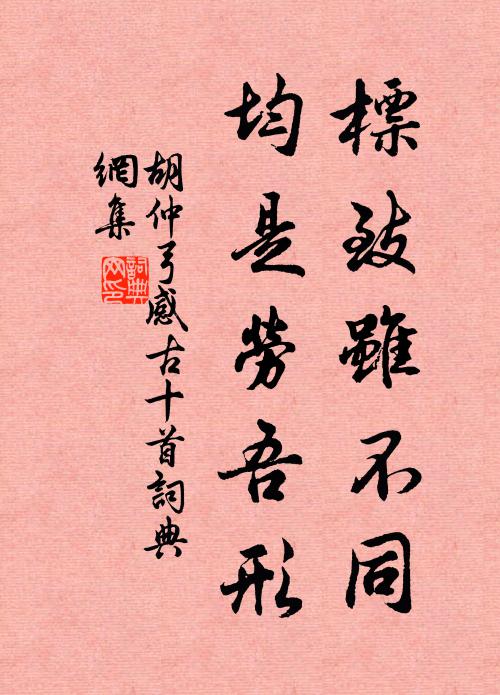 標致雖不同
均是勞吾形
胡仲弓感古十首詞典
網集
詞典網印